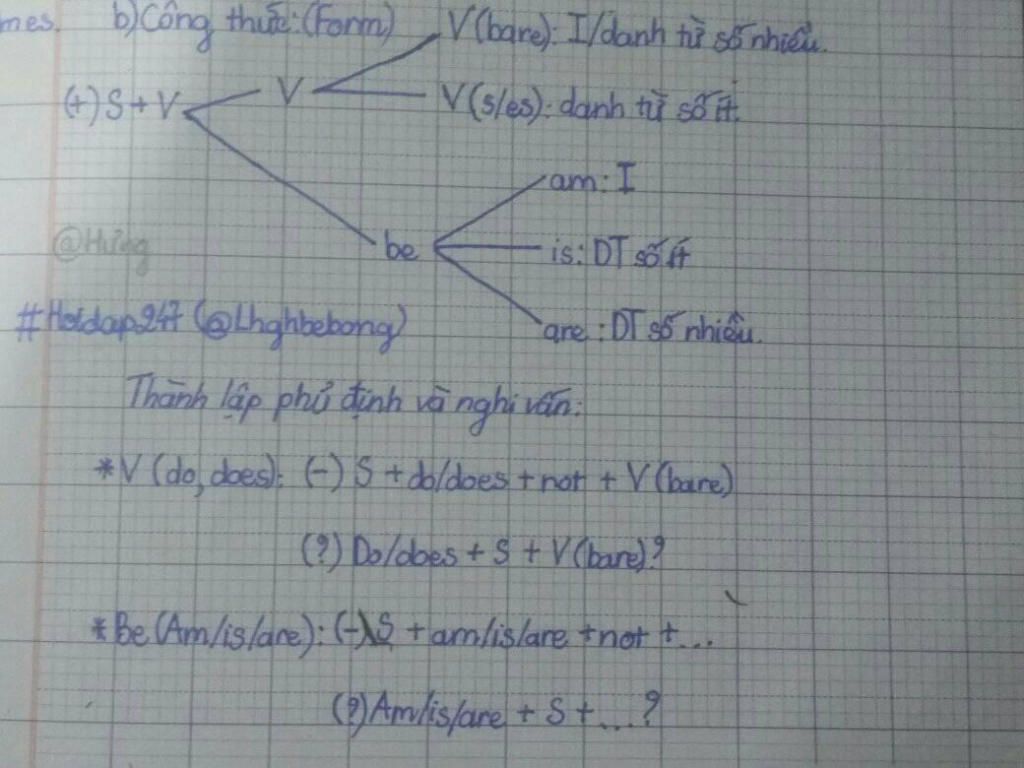 mes. b) Công thức: (Form) V(bare): I/danh từ số nhiều.
(+) S + V V V(s/es): danh từ số ít.
am: I
@Hưng be is: DT số ít
#Hoidap247 (@Lhghbebong) are: DT số nhiều.
Thành lập phủ định và nghi vấn:
*V (do, does): (-) S + do/does + not + V(bare)
(?) Do/does + S + V(bare)?
*Be (Am/is/are): (-) S + am/is/are + not + ...
(?) Am/is/are + S + ...?